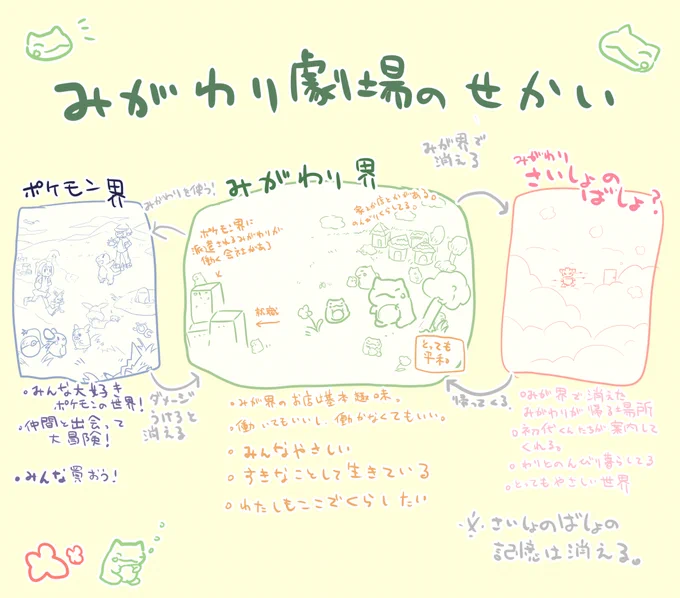 みがわり劇場のせかい
ポケモン界
みがわりを使う!
みがわり界
みが界で
消える
みがわり
さいしょの
ばしょ?
ポケモン界に
派遣されるみがわりが
働く会社がある
家とか店とかがある。
のんびりくらしてる。
就職
とっても
平和。
ダメージ
うけると
消える
帰ってくる
・みんな大好き
ポケモンの世界!
・仲間と出会って
大冒険!
・みんな買おう!
・みが界のお店は基本趣味。
・働いてもいいし、働かなくてもいい。
・みんなやさしい
・すきなことして生きている
・わたしもここでくらしたい
・みが界で消えた
みがわりが帰る場所
・初代くんたちが案内して
くれる。
・わりとのんびり暮らしてる
・とってもやさしい世界
※さいしょのばしょの
記憶は消える。